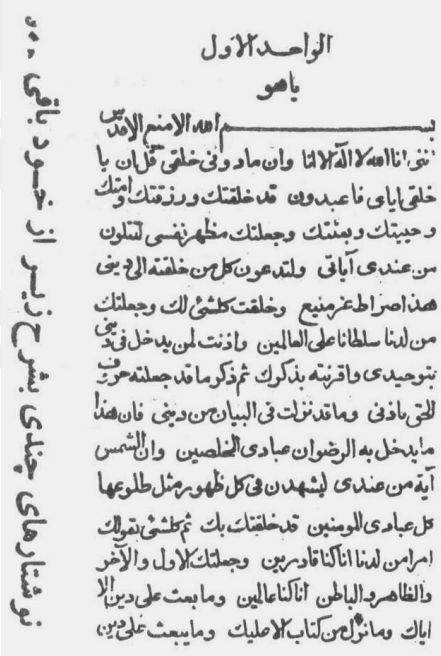 الواحد الاول
ياهو
بسم الله الامنع الاقدس
اننى انا الله لا اله الا انا وان ما دونى خلقى قل ان يا
خلقى اياى فاعبدون قد خلقتك ورزقتك وامتك
وحييتك وبعثتك وجعلتك مظهر نفسى لتتلون
من عندى آياتى ولتدعون كل من خلقته الى دينى
هذا صراط عز منيع وخلقت كلشئ لك وجعلتك
من لدنا سلطانا على العالمين واذنت لمن يدخل فى دينى
بتوحيدى واقرنته بذكرك ثم ذكر ما قد جعلته حروف
الحى باذنى وما قد نزلت فى البيان من دينى فان هذا
ما يدخل به الرضوان عبادى المخلصين وان الشمس
آية من عندى ليشهدن فى كل ظهور مثل طلوعها
كل عبادى المومنين قد خلقتك بك ثم كلشئ بقولك
امرا من لدنا اناكنا قادرين وجعلتك الاول والآخر
والظاهر والباطن اناكنا عالمين وما بعث على دين الا
اياك وما نزل من كتاب الا عليك وما يبعث على دين
نوشتارهاى چندى بشرح زير از خود باقى